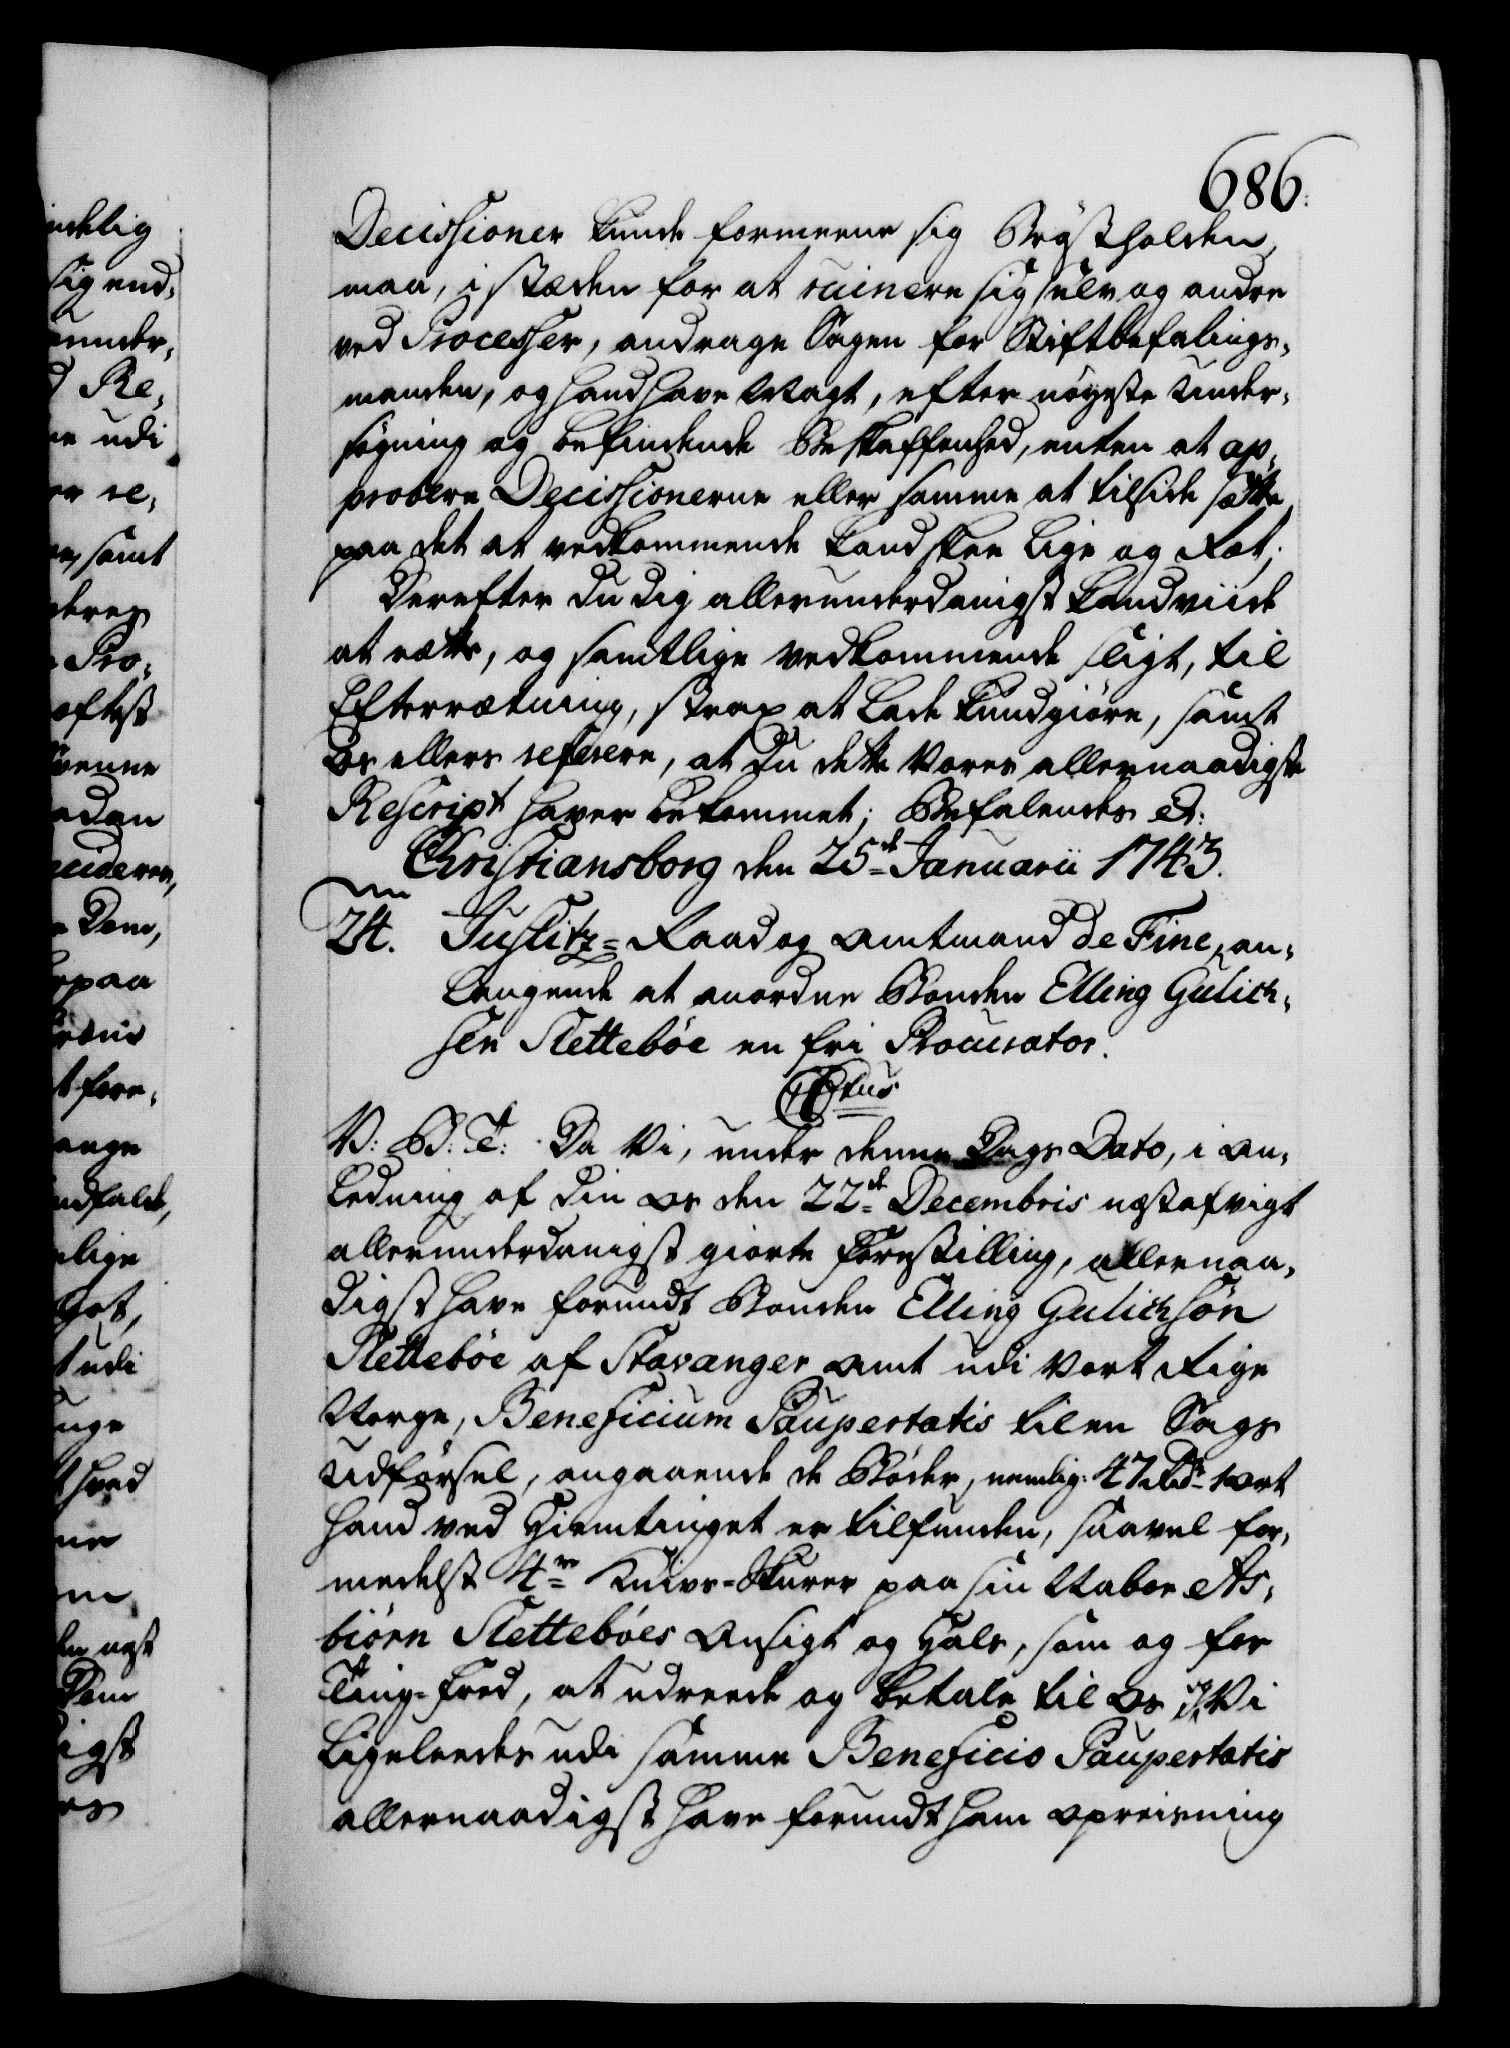 686.
Decissioner kunde formeene sig Brøstholden,
maa, i stæden for at ruinere sig selv og andre
ved Processer, andrage Sagen for Stiftbefalings-
manden, og hand have Magt, efter nøyeste Under-
søgning og befindende Beskaffenhed, enten at ap-
probere Decissionerne eller samme at tilside sætte,
paa det at vedkommende kand skee Lige og Ræt;
Derefter du dig allerunderdanigst kand viide
at rætte, og samtlige vedkommende sligt, til
Efterrætning, strax at lade kundgiøre, samt
Os ellers referere, at Du dette Vores allernaadigste
Rescript haver bekommet; Befalendes etc:
Christiansborg den 25de Januarii 1743.
24. Justitz-Raad og Amtmand de Fine, an-
langende at anordne Bonden Elling Gulich-
sen Slettebøe en fri Procurator.
C6tus
V: G: T: Da Vi, under denne Dags Dato, i An-
ledning af din Os den 22de Decembris næstafvigt
allerunderdanigst giorte Forestilling, allernaa-
digst have forundt Bonden Elling Gulichsøn
Slettebøe af Stavanger Amt udi Vort Rige
Norge, Beneficium Paupertatis til en Sags
Udførsel, angaaende de Bøder, nemlig: 47 Rdr 1 ort
hand ved Hiemtinget er tilfunden, saavel for-
medelst 4re Knivs-Skurer paa sin Nabor As-
biørn Slettebøes Ansigt og Hals, som og for
Ting-Fred, at udreede og betale til Os; Vi
ligeleedes udi samme Beneficio Paupertatis
allernaadigst have forundt ham Opreisning